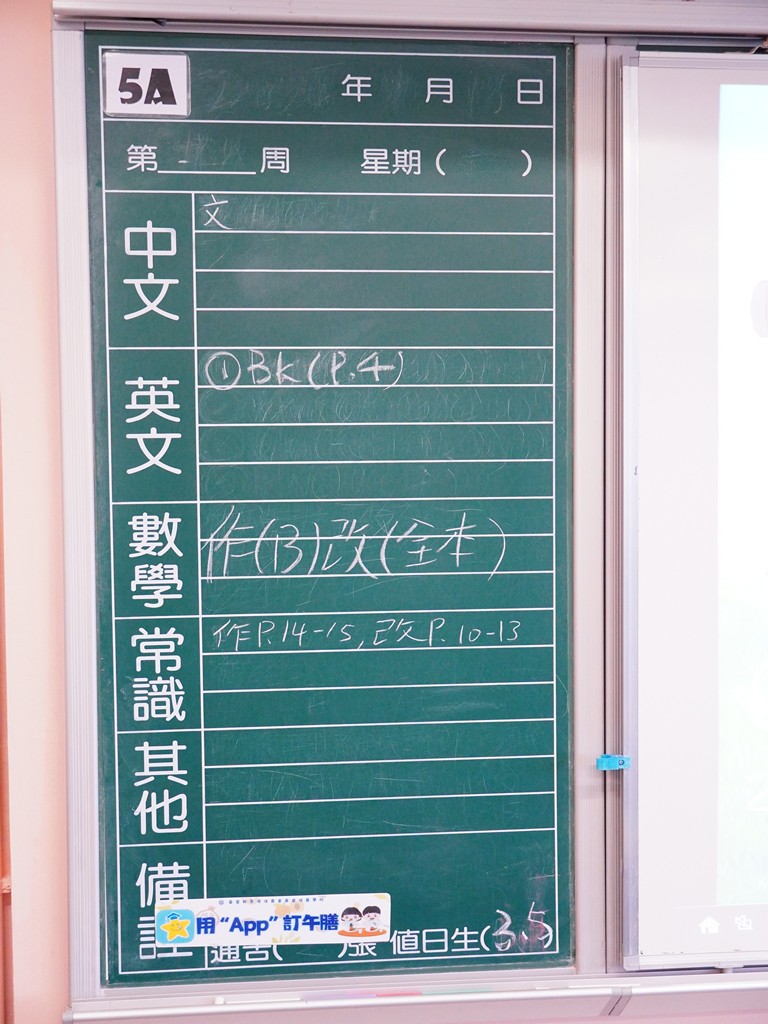 5A
年 月 日
第 周 星期( )
中文
文
英文
①Bk(P.4)
數學
作(B)改(全本)
常識
作P.14-15,改P.10-13
其他
備註
用“App”訂午膳
通告( )張 值日生(3,5)